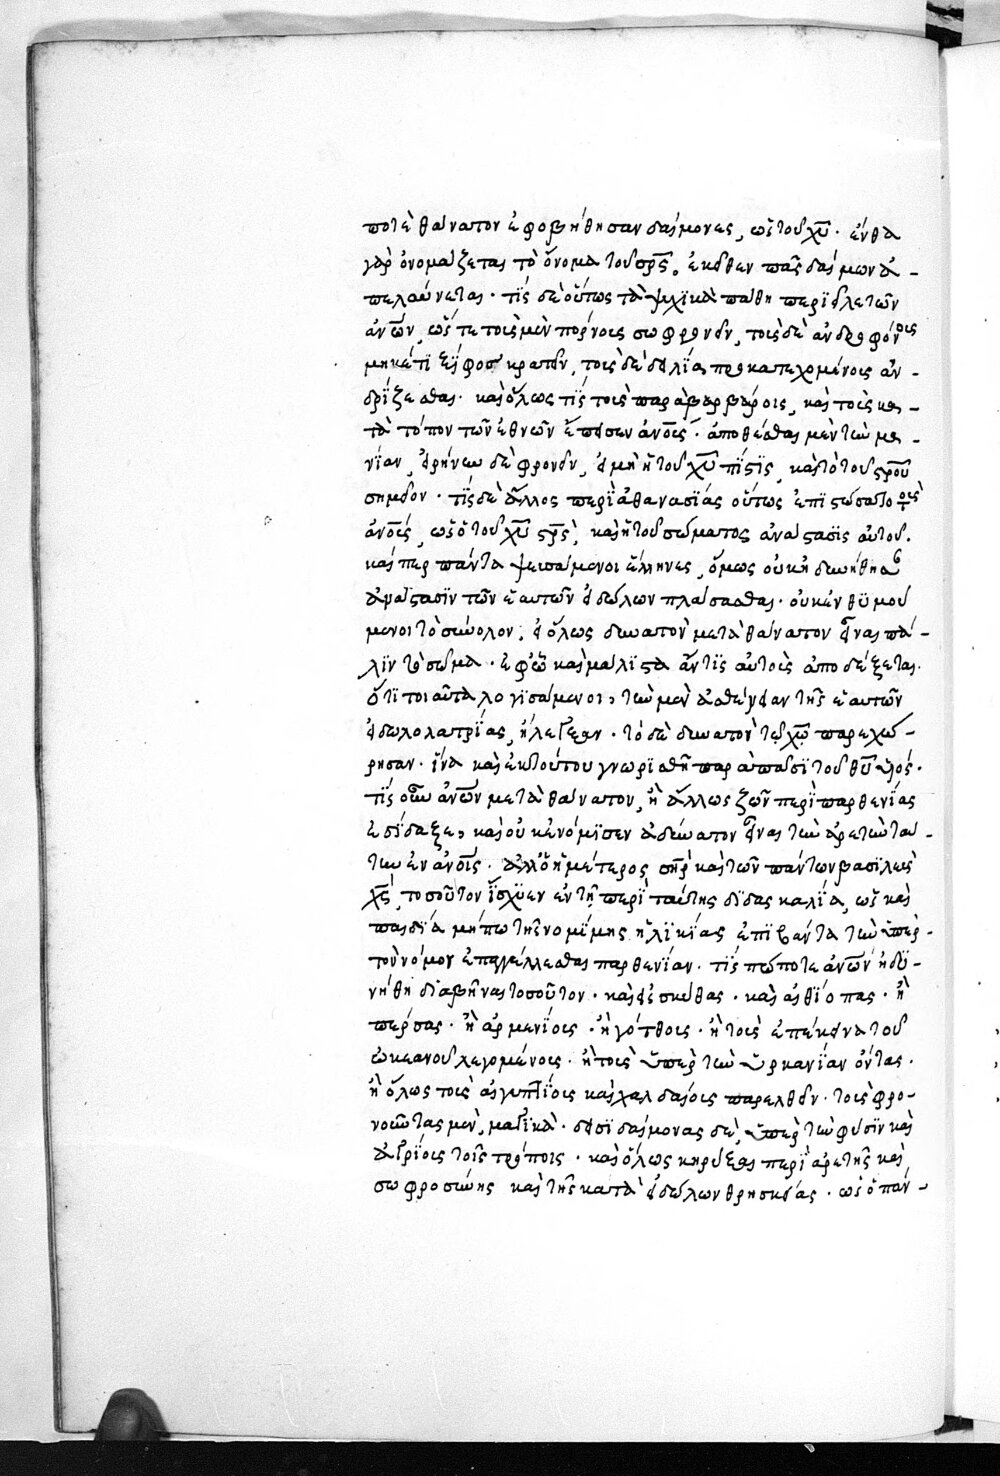 ποτὲ θάνατον ἐφοβήθησαν δαίμονες, ὡς τοῦ χῦ· ἔνθα
γὰρ ὀνομάζεται τὸ ὄνομα τοῦ σρς, ἐκεῖθεν πᾶς δαίμων ἀ-
πελαύνεται· τίς δὲ οὕτως τὰ ψυχικὰ πάθη περιεῖλε τῶν
ἀνῶν, ὥστε τοὺς μὲν πόρνους σωφρονεῖν, τοὺς δὲ ἀνδροφόνους
μηκέτι ξίφος κρατεῖν, τοὺς δὲ δειλίᾳ προκατεχομένους ἀν-
δρίζεσθαι· καὶ ὅλως τίς τοὺς παρὰ βαρβάροις, καὶ τοὺς κα-
τὰ τόπον τῶν ἐθνῶν ἔπεισεν ἀνους· ἀποθέσθαι μὲν τὴν μα-
νίαν, εἰρήνην δὲ φρονεῖν, εἰ μὴ ἡ τοῦ χῦ πίστις, καὶ τὸ τοῦ σροῦ
σημεῖον· τίς δὲ ἄλλος περὶ ἀθανασίας οὕτως ἐπιστώσατο τοὺς
ἀνους, ὡς ὁ τοῦ χῦ σρς, καὶ ἡ τοῦ σώματος ἀνάστασις αὐτοῦ.
καίπερ πάντα ψευσάμενοι ἕλληνες, ὅμως οὐκ ἠδυνήθησαν
ἀνάστασιν τῶν ἑαυτῶν εἰδώλων πλάσασθαι· οὐκ ἐνθυμού
μενοι τὸ σύνολον, εἰ ὅλως δυνατὸν μετὰ θάνατον εἶναι πά-
λιν τὸ σῶμα· ἐφ' ᾧ καὶ μάλιστα ἄν τις αὐτοὺς ἀποδέξεται.
ὅτι τοιαῦτα λογισάμενοι, τὴν μὲν ἀσθένειαν τῆς ἑαυτῶν
εἰδωλολατρίας, ἤλεγξαν· τὸ δὲ δυνατὸν τῷ χῷ παρεχώ-
ρησαν· ἵνα καὶ ἐκ τούτου γνωρισθῇ παρὰ πᾶσι τοῦ θῦ υἱός·
τίς οὖν ἀνῶν μετὰ θάνατον, ἢ ἄλλως ζῶν περὶ παρθενίας
ἐδίδαξε, καὶ οὐκ ἐνόμισεν ἀδύνατον εἶναι τὴν ἀρετὴν ταύ-
την ἐν ἀνοις· ἀλλ' ὁ ἡμέτερος σηρ καὶ τῶν πάντων βασιλεὺς
χς, τοσοῦτον ἴσχυεν ἐν τῇ περὶ ταύτης διδασκαλίᾳ, ὡς καὶ
παιδία μήπω τῆς νομίμης ἡλικίας ἐπιβάντα τὴν ὑπὲρ-
τὸν νόμον ἐπαγγέλλεσθαι παρθενίαν· τίς πώποτε ἀνῶν ἠδυ-
νήθη διαβῆναι τοσοῦτον· καὶ εἰς σκύθας· καὶ αἰθίοπας· ἢ
πέρσας· ἢ ἀρμενίους· ἢ γότθους· ἢ τοὺς ἐπέκεινα τοῦ
ὠκεανοῦ λεγομένους· ἢ τοὺς ὑπὲρ τὴν ὑρκανίαν ὄντας·
ἢ ὅλως τοὺς αἰγυπτίους καὶ χαλδαίους παρελθεῖν· τοὺς φρο-
νοῦντας μὲν, μαγικὰ· δεισιδαίμονας δὲ, ὑπὲρ τὴν φύσιν καὶ
ἀγρίους τοῖς τρόποις· καὶ ὅλως κηρύξαι περὶ ἀρετῆς καὶ
σωφροσύνης καὶ τῆς κατὰ εἰδώλων θρησκείας· ὡς ὁ πάν-